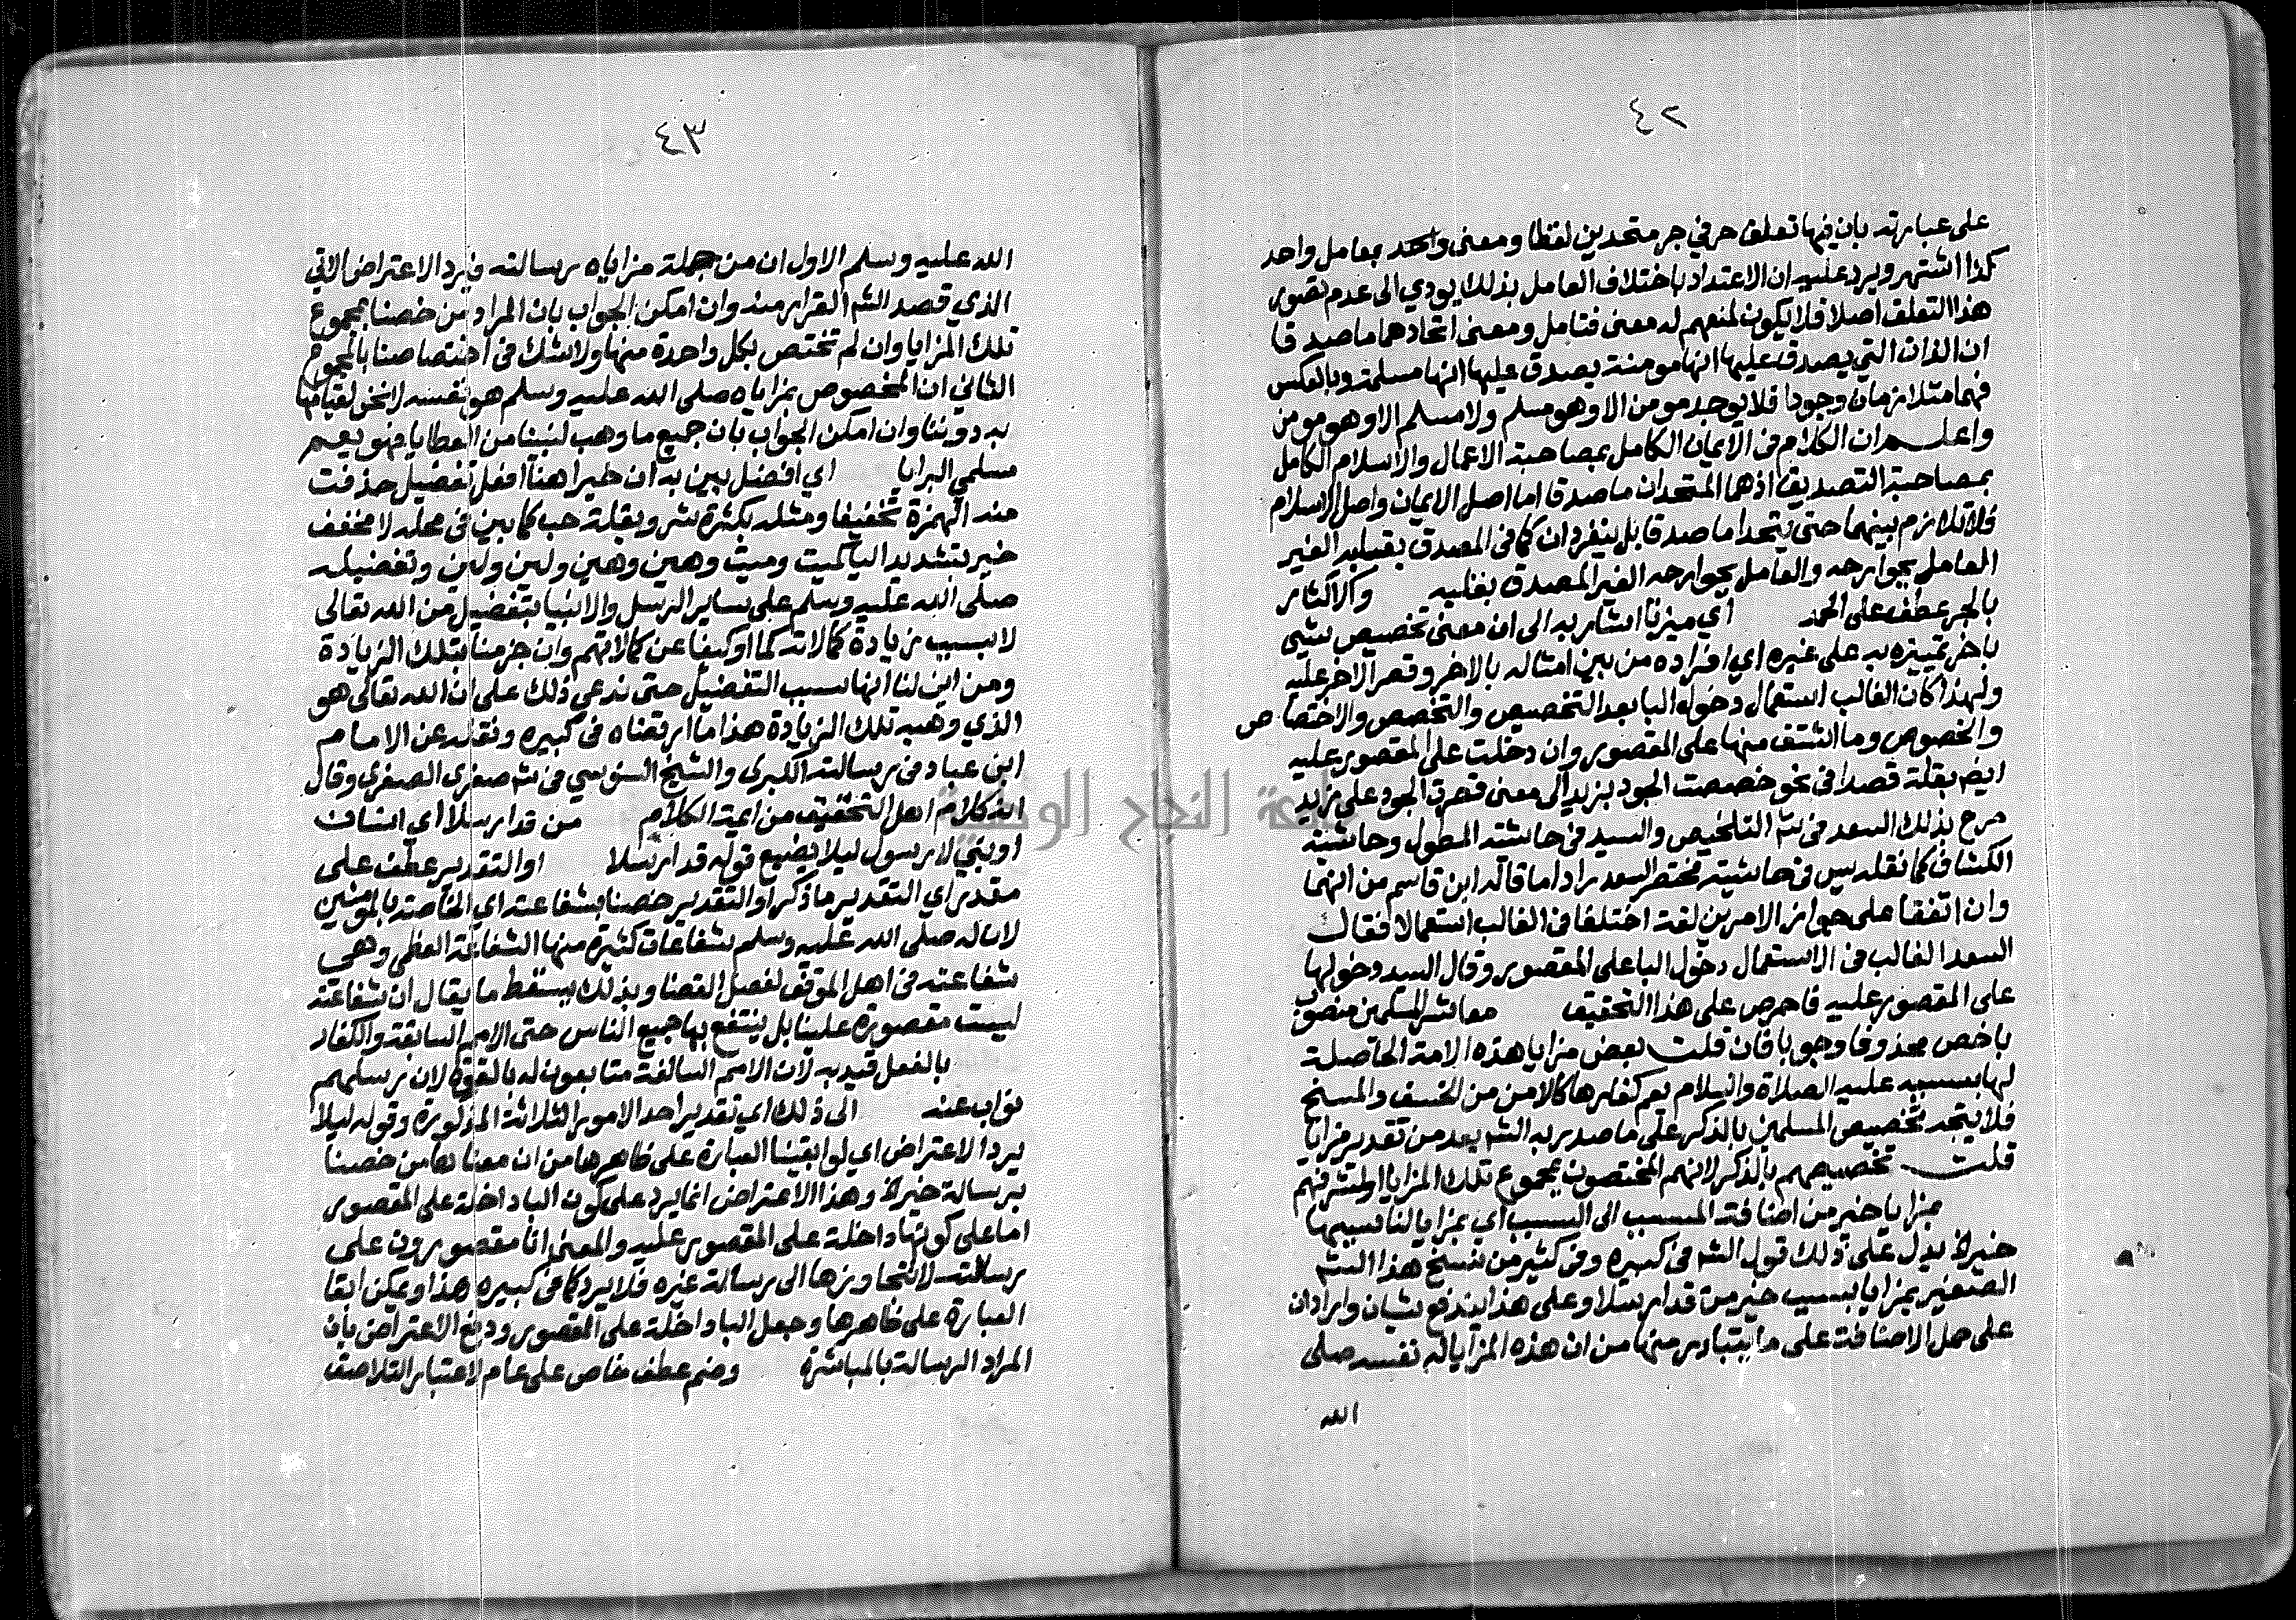 ٤٢
على عبارته بان فيها تعلق حرفي جر متحدين لفظا ومعنى واحد بعامل واحد
كذا اشتهر ويرد عليه ان الاعتداد باختلاف العامل بذلك يودي الى عدم تصور
هذا التعلق اصلا فلا يكون لمنعهم له معنى فتامل ومعنى اتحادهما ماصدقا
ان الذات التي يصدق عليها انها مومنة يصدق عليها انها مسلمة وبالعكس
فهما متلازمان وجودا فلا يوجد مومن الا وهو مسلم ولا مسلم الا وهو مومن
واعلم ان الكلام في الايمان الكامل بمصاحبة الاعمال والاسلام الكامل
بمصاحبة التصديق اذهما المتحدان ماصدقا اما اصل الايمان واصل الاسلام
فلا تلازم بينهما حتى يتحدا ماصدقا بل ينفردان كما في المصدق بقلبه الغير
العامل بجوارحه والعامل بجوارحه الغير المصدق بقلبه والاكثار
بالجر عطف على الحمد اي ميزنا اشار به الى ان معنى تخصيص شي
باخر تمييزه به على غيره اي افراده من بين امثاله بالاخر وقصر الاخر عليه
ولهذا كان الغالب استعمال دخول البا بعد التخصيص والتخصص والاختصاص
والخصوص وما اشتق منها على المقصور وان دخلت على المقصور عليه
ايض بقلة قصدا في نحو خصصت الجود بزيد الى معنى قصرت الجود على زيد
صرح بذلك السعد في ش التلخيص والسيد في حاشية المطول وحاشية
الكشاف كما نقله يس في حاشية مختصر السعد رادا ما قاله ابن قاسم من انهما
وان اتفقا على جواز الامرين لغة اختلفا في الغالب استعمالا فقال
السعد الغالب في الاستعمال دخول البا على المقصور وقال السيد دخولها
على المقصور عليه فاحرص على هذا التحقيق معاشر المسلمين منصوب
باخص محذوفا وجوبا فان قلت بعض مزايا هذه الامة الحاصلة
لها بسببه عليه الصلاة والسلام يعم كفارها كالامن من الخسف والمسخ
فلا يتجه تخصيص المسلمين بالذكر على ما صدر به الشم بعد من تقدير مزايا
قلت تخصيصهم بالذكر لانهم المختصون بمجموع تلك المزايا او لشرفهم
بمزايا خير من اضافة المسبب الى السبب اي بمزايا لنا بسببها
خيرك يدل على ذلك قول الشم في كبيره وفي كثير من نسخ هذا الشم
الصغير بمزايا بسبب خير من قدارسلا وعلى هذا يندفع بشان وارادان
على حمل الاضافة على ما يتبادر منها من ان هذه المزايا له نفسه صلى
الله
٤٣
الله عليه وسلم الاول ان من جملة مزاياه رسالته فيرد الاعتراض الاتي
الذي قصد الشم الفرار منه وان امكن الجواب بان المراد من خصنا بمجموع
تلك المزايا وان لم تختص بكل واحدة منها ولا شك في اختصاصنا بالمجموع
الثاني ان المخصوص بمزاياه صلى الله عليه وسلم هو نفسه لا نحن لقيامها
به دوننا وان امكن الجواب بان جميع ما وهب لنبينا من العطايا فهو يعم
مسلمي البرايا اي افضل بين به ان خيرا هنا افعل تفضيل حذفت
منه الهمزة تخفيفا ومثله بكثرة شر وبقلة حب كما بين في محله لا مخفف
خير بتشديد اليا كميت وميت وهين وهين ولين ولين وتفضيله
صلى الله عليه وسلم على ساير الرسل والانبيا بتفضيل من الله تعالى
لا بسبب زيادة كمالاته كما اوكيفا عن كمالاتهم وان جزمنا بتلك الزيادة
ومن اين لنا انها سبب التفضيل حتى ندعي ذلك على ان الله تعالى هو
الذي وهبه تلك الزيادة هذا ما ارتضاه في كبيره ونقله عن الامام
ابن عباد في رسالته الكبرى والشيخ السنوسي في ش صغرى الصغرى وقال
انه كلام اهل التحقيق من ايمة الكلام من قدارسلا اي انسان
او نبي لا رسول ليلا يضيع قوله قدارسلا او التقدير عطف على
مقدر اي التقدير ما ذكر او التقدير خصنا بشفاعته اي الخاصة بالمومنين
لان له صلى الله عليه وسلم شفاعات كثيرة منها الشفاعة العظمى وهي
شفاعته في اهل الموقف لفصل القضا وبذلك يسقط ما يقال ان شفاعته
ليست مقصورة علينا بل ينتفع بها جميع الناس حتى الامم السابقة والكفار
بالفعل قيد به لان الامم السالفة متابعون له بالقوة لان رسلهم
نواب عنه الى ذلك اي تقدير احد الامور الثلاثة المذكورة وقوله ليلا
يرد الاعتراض اي لو ابقينا العبارة على ظاهرها من ان معناها من خصنا
برسالة خيرك وهذا الاعتراض انما يرد على كون البا داخلة على المقصور
اما على كونها داخلة على المقصور عليه والمعنى انا مقصورون على
رسالته لا نتجاوزها الى رسالة غيره فلا يرد كما في كبيره هذا ويمكن ابقا
العبارة على ظاهرها وجعل البا داخلة على المقصور ودفع الاعتراض بان
المراد الرسالة بالمباشرة وضم عطف خاص على عام لاعتبار التلاصق
جامعة النجاح الوطنية